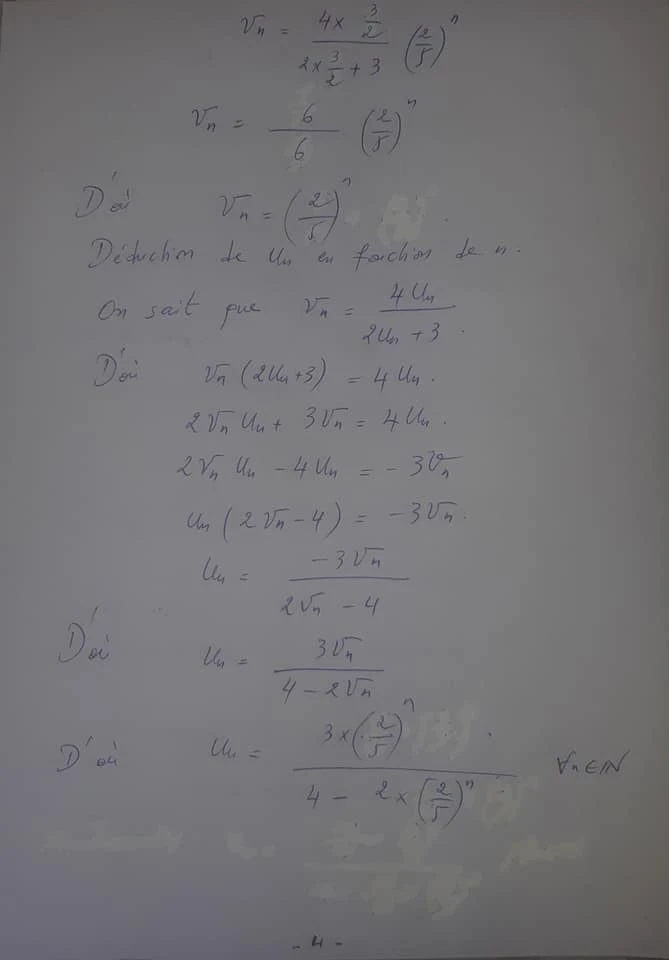 Vn = (4 × 3/2) / (2 × 3/2 + 3) (2/5)^n
Vn = 6/6 (2/5)^n
D'où Vn = (2/5)^n.
Déduction de Un en fonction de n.
On sait que Vn = 4Un / (2Un + 3).
D'où Vn (2Un + 3) = 4Un.
2Vn Un + 3Vn = 4Un.
2Vn Un - 4Un = - 3Vn
Un (2Vn - 4) = - 3Vn.
Un = -3Vn / (2Vn - 4)
D'où Un = 3Vn / (4 - 2Vn)
D'où Un = (3 × (2/5)^n) / (4 - 2 × (2/5)^n) ∀n ∈ IN
- 4 -